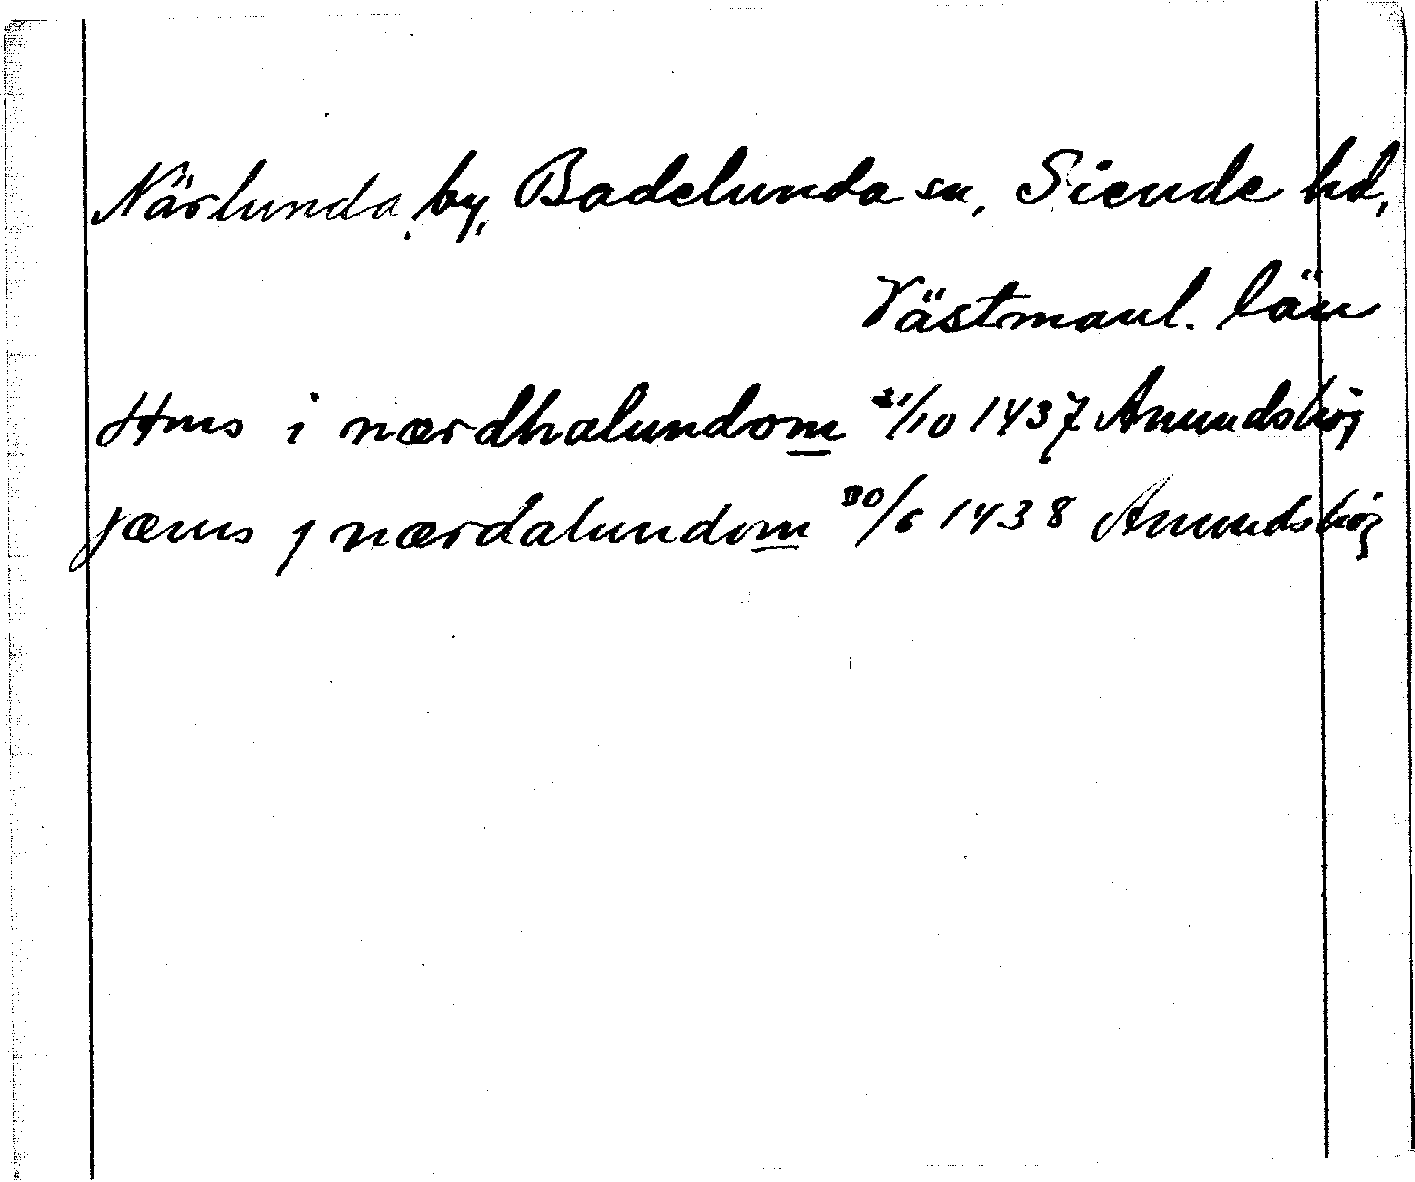 Närlunda by, Badelunda sn, Siende hd,
Västmanl. län
Hns i nærdhalundom 21/10 1437 Anundshög
Jæns j nærdalundom 30/6 1438 Anundshög